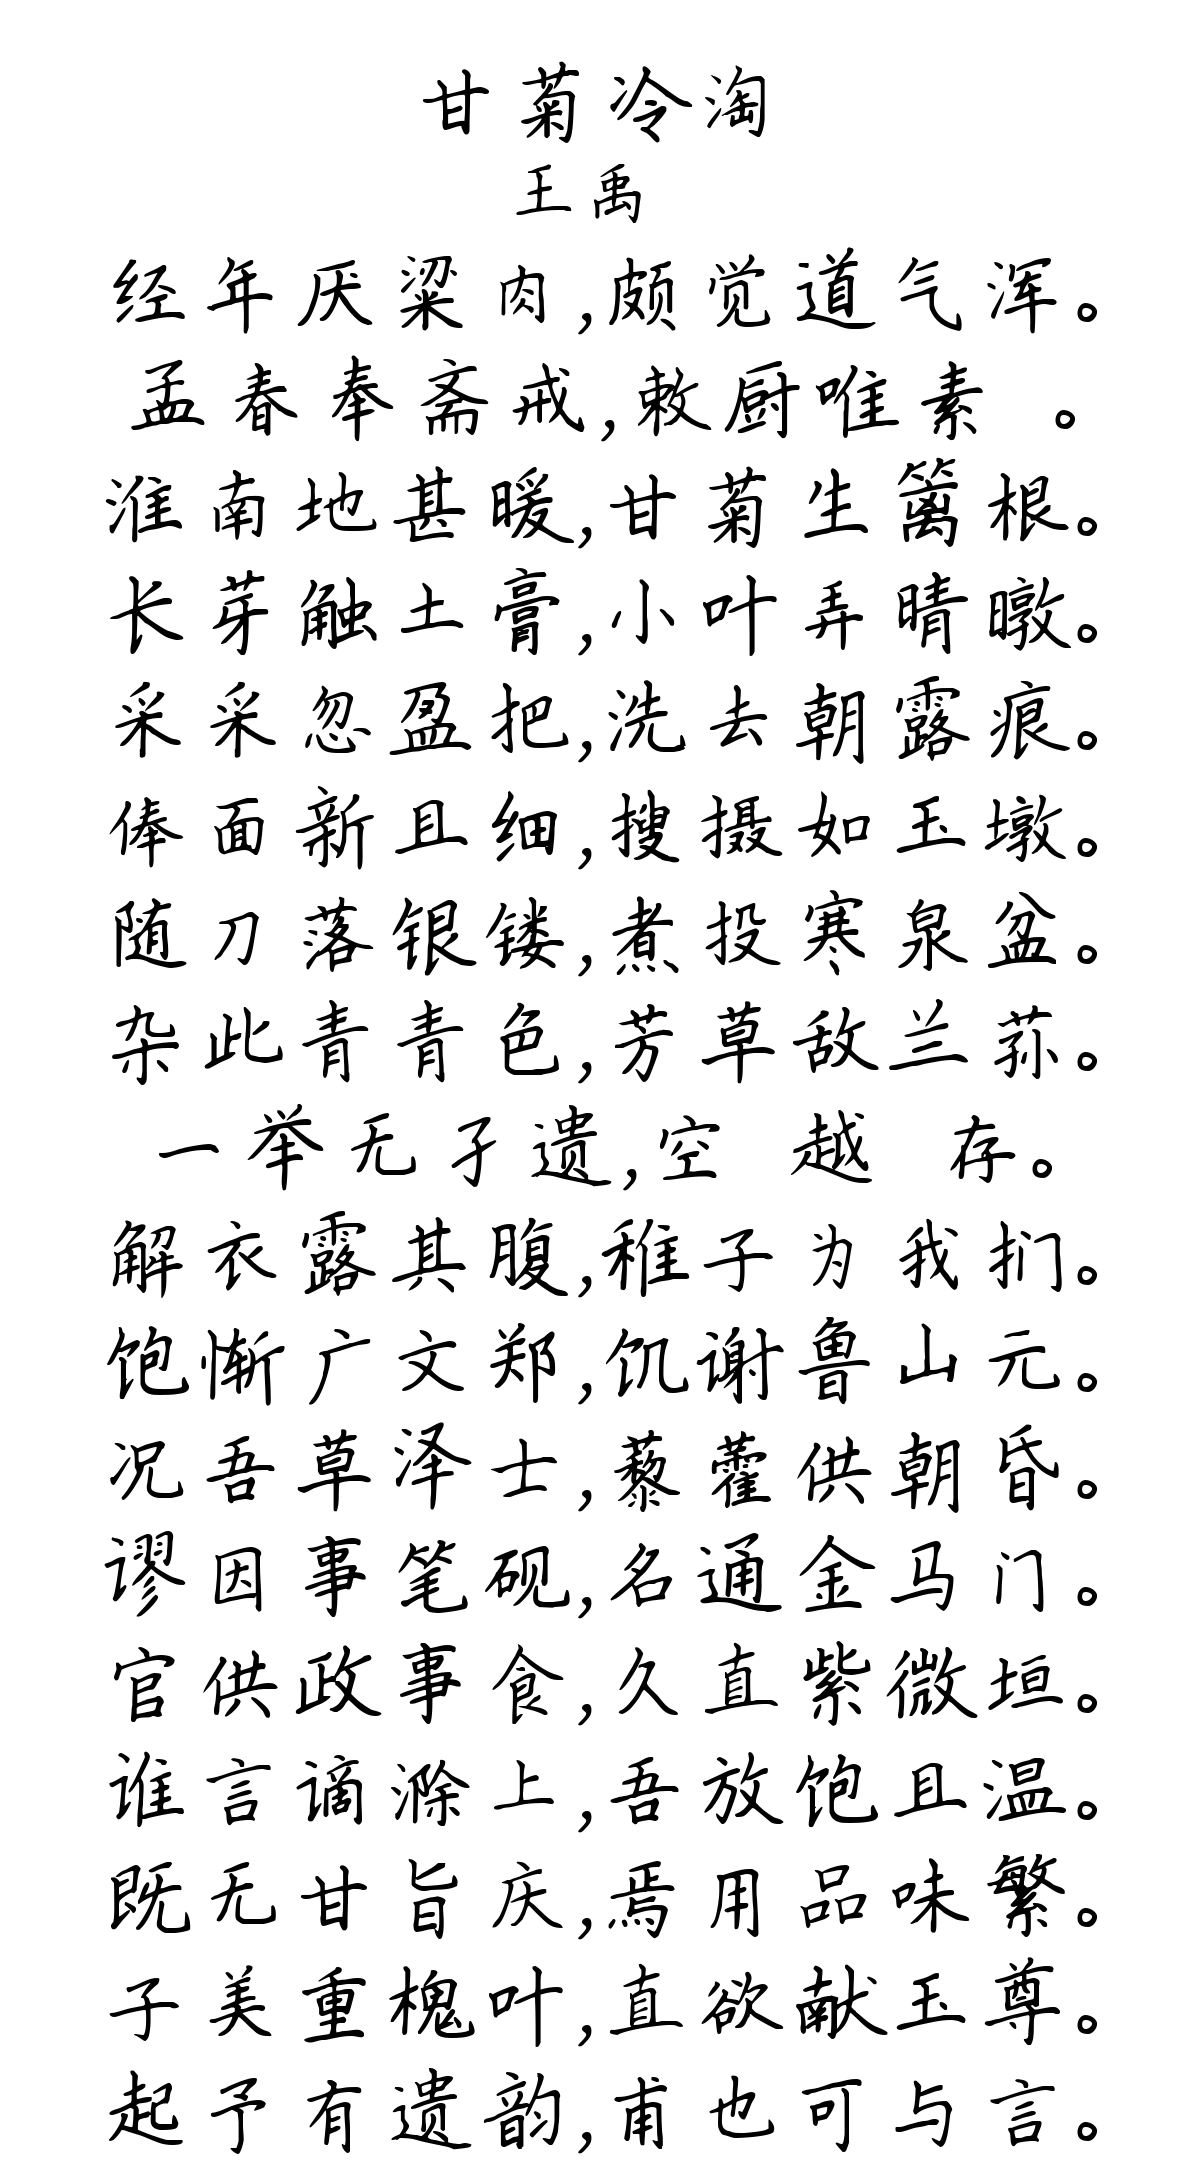 甘菊冷淘
王禹
经年厌粱肉,颇觉道气浑。
孟春奉斋戒,敕厨唯素 。
淮南地甚暖,甘菊生篱根。
长芽触土膏,小叶弄晴暾。
采采忽盈把,洗去朝露痕。
俸面新且细,搜摄如玉墩。
随刀落银镂,煮投寒泉盆。
杂此青青色,芳草敌兰荪。
一举无孑遗,空 越 存。
解衣露其腹,稚子为我扪。
饱惭广文郑,饥谢鲁山元。
况吾草泽士,藜藿供朝昏。
谬因事笔砚,名通金马门。
官供政事食,久直紫微垣。
谁言谪滁上,吾放饱且温。
既无甘旨庆,焉用品味繁。
子美重槐叶,直欲献玉尊。
起予有遗韵,甫也可与言。